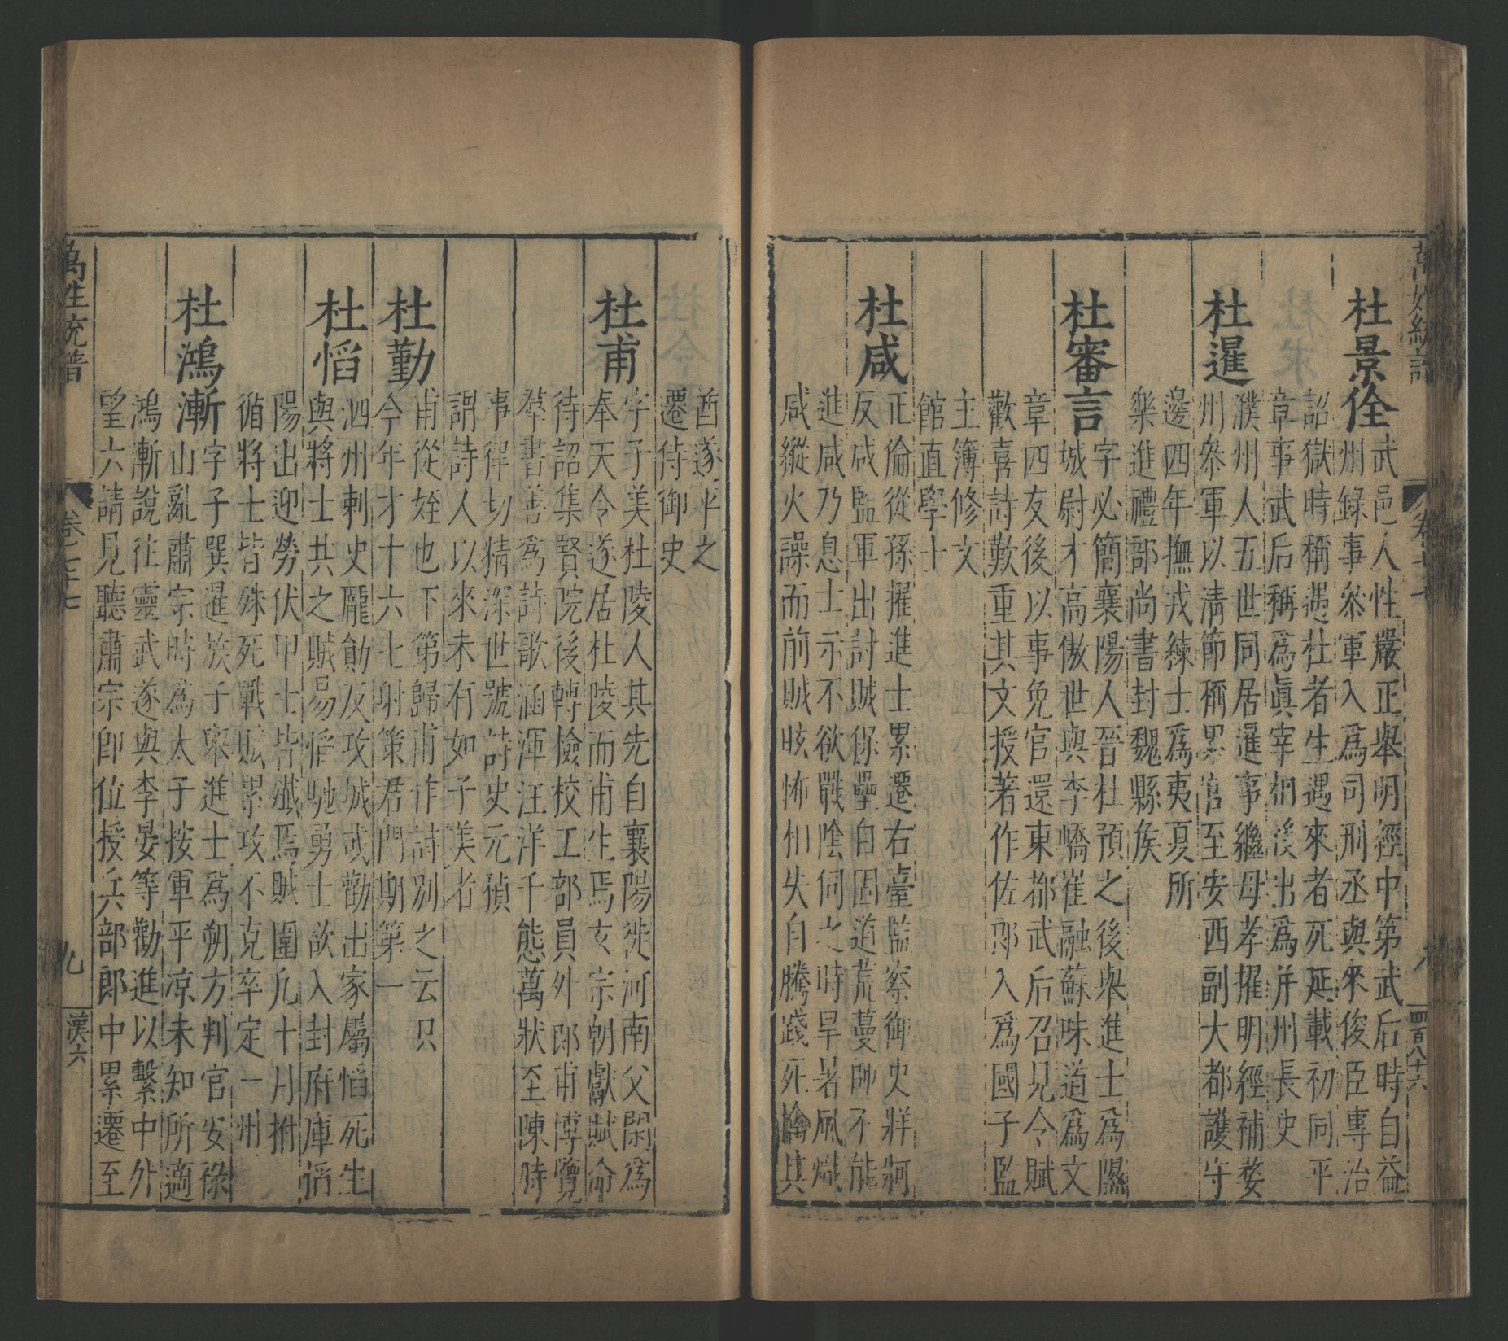 萬姓統譜
卷七十七
四百八十六
杜景佺
武邑人性嚴正舉明經中第武后時自益
州録事叅軍入爲司刑丞與來俊臣專治
詔獄時稱遇杜者生遇來者死延載初同平
章事武后稱爲眞宰相後出爲并州長史
杜暹
濮州人五世同居暹事繼母孝擢明經補婺
州叅軍以清節稱累官至安西副大都護守
邊四年撫戎練士爲夷夏所
樂進禮部尚書封魏縣矦
杜審言
字必簡襄陽人晉杜預之後舉進士爲隰
城尉才高傲世與李嶠崔融蘇味道爲文
章四友後以事免官還東都武后召見令賦
歡喜詩歎重其文授著作佐郎入爲國子監
主簿修文
館直學士
杜咸
正倫從孫擢進士累遷右臺監察御史牂牁
反咸監軍出討賊保壘自固道荒蔓師不能
進咸乃息士示不欲戰陰伺之時旱暑風熾
咸縱火譟而前賊眩怖相失自騰踐死擒其
酋遂平之
遷侍御史
杜甫
字子美杜陵人其先自襄陽徙河南父閑爲
奉天令遂居杜陵而甫生焉玄宗朝獻賦命
待詔集賢院後轉檢校工部員外郎甫博覽
羣書善爲詩歌涵渾汪洋千態萬狀至陳時
事律切精深世號詩史元稹
謂詩人以來未有如子美者
杜勤
甫從姪也下第歸甫作詩别之云只
今年才十六七射策君門期第一
杜慆
泗州刺史龐勛反攻城或勸出家屬慆死生
與將士共之賊易慆馳勇士欲入封府庫慆
陽出迎勞伏甲士皆殲焉賊圍凢十月拊
循將士皆殊死戰賊累攻不克卒定一州
杜鴻漸
字子巽暹族子舉進士爲朔方判官安祿
山亂肅宗時爲太子按軍平凉未知所適
鴻漸說往靈武遂與李晏等勸進以繫中外
望六請見聽肅宗卽位授兵部郎中累遷至
萬姓統譜
卷七十七
九
漢六